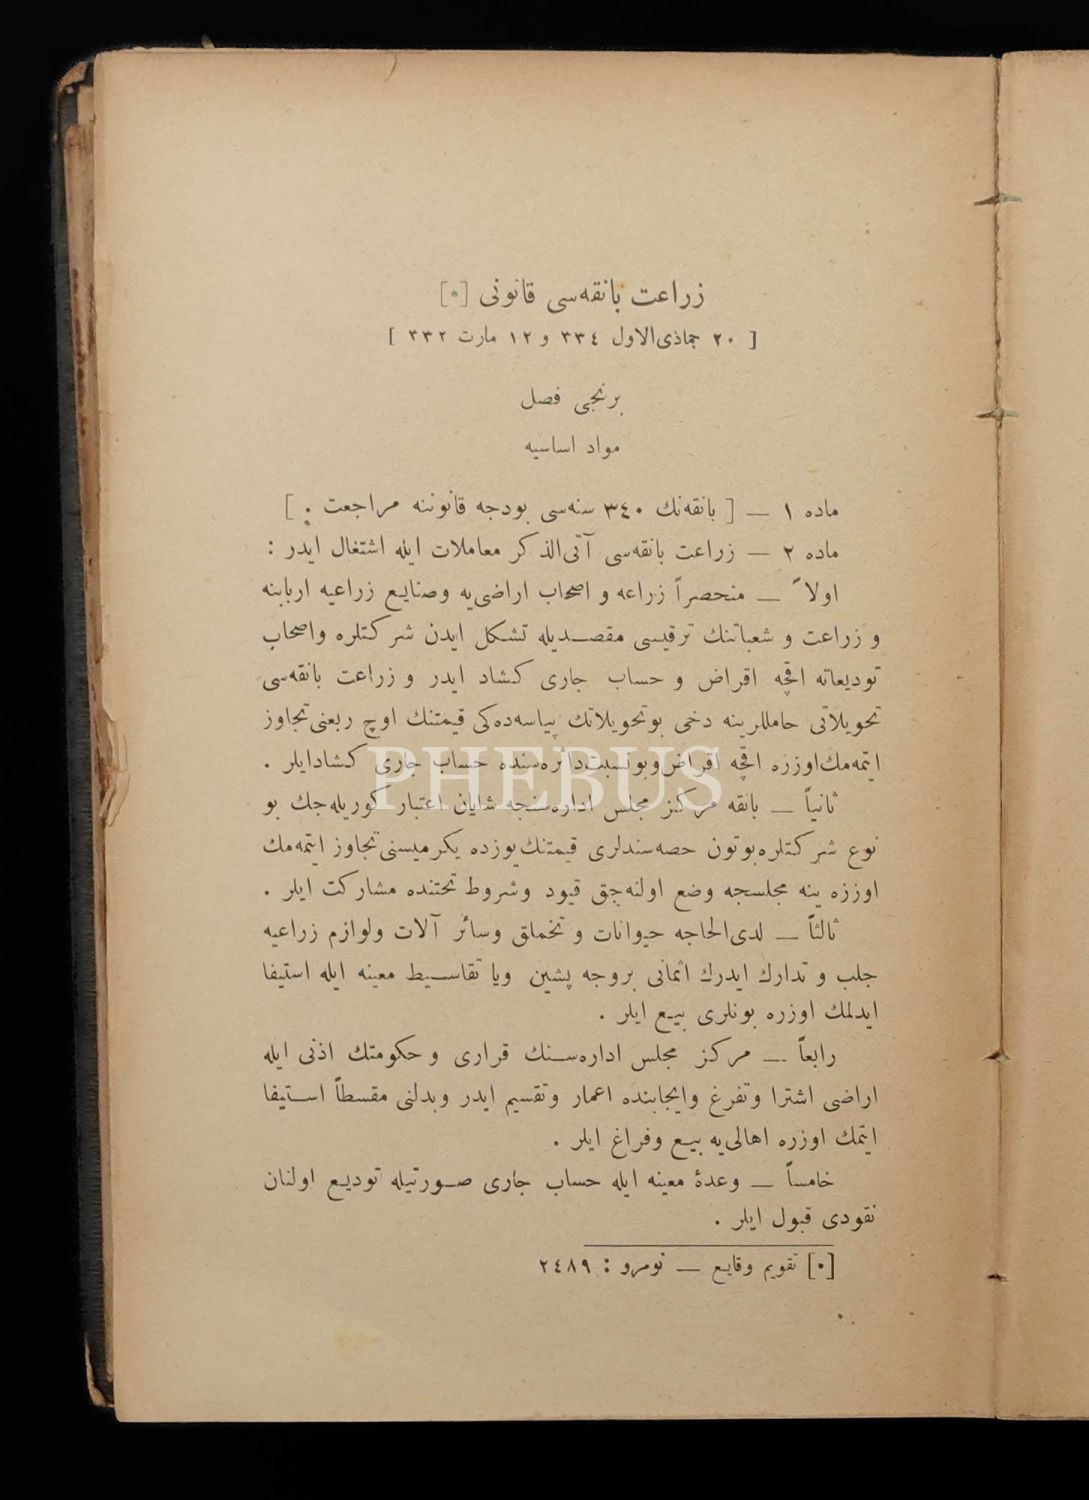 زراعت بانقه‌سی قانونی [٠]
[ ٢٠ جماذی‌الاول ٣٣٤ و ١٢ مارت ٣٣٢ ]
برنجی فصل
مواد اساسیه
ماده ١ — [ بانقه‌نك ٣٤٠ سنه‌سی بودجه قانوننه مراجعت . ]
ماده ٢ — زراعت بانقه‌سی آتی‌الذكر معاملات ایله اشتغال ایدر :
اولاً — منحصراً زراعه و اصحاب اراضی‌یه وصنایع زراعیه اربابنه
و زراعت و شعباتنك ترقیسی مقصدیله تشكل ایدن شركتلره واصحاب
تودیعاته اقچه اقراض و حساب جاری كشاد ایدر و زراعت بانقه‌سی
تحویلاتی حامللرینه دخی بوتحویلاتك پیاسه‌ده‌كی قیمتنك اوچ ربعنی تجاوز
ایتمه‌مك اوزره اقچه اقراض وبونسبت دائره‌سنده حساب جاری كشادایلر .
PHEBUS
ثانیاً — بانقه مركز مجلس اداره‌سنجه شایان اعتبار كوریله‌جك بو
نوع شركتلره بوتون حصه‌سندلری قیمتنك یوزده یكرمیسنی تجاوز ایتمه‌مك
اوززه ینه مجلسجه وضع اولنه‌جق قیود وشروط تحتنده مشاركت ایلر .
ثالثاً — لدی‌الحاجه حیوانات و تخملق وسائر آلات ولوازم زراعیه
جلب و تدارك ایدرك اثمانی بروجه پشین ویا تقاسیط معینه ایله استیفا
ایدلمك اوزره بونلری بیع ایلر .
رابعاً — مركز مجلس اداره‌سنك قراری و حكومتك اذنی ایله
اراضی اشترا وتفرغ وایجابنده اعمار وتقسیم ایدر وبدلنی مقسطاً استیفا
ایتمك اوزره اهالی‌یه بیع وفراغ ایلر .
خامساً — وعدهٔ معینه ایله حساب جاری صورتیله تودیع اولنان
نقودی قبول ایلر .
[٠] تقویم وقایع — نومرو : ٢٤٨٩